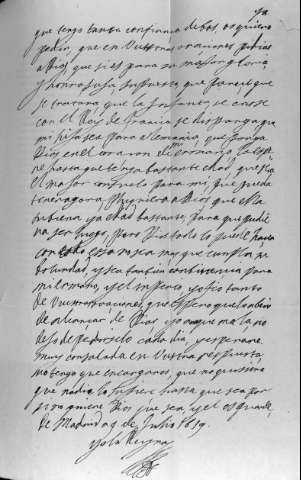 que tengo tanta confianza de bos, os quiero
pedir, que en Vuestras oraciones pidais
a Dios, que si es para su mayor gloria
y honra suya, supuesto que parece que
se tratava que la Infanta, se case
con el Rei de Francia se disponga que
mi hija sea para Alemania, que ponga
Dios en el coraçon de mi ermano, la espere
hasta que tenga bastante edad, que sera
el mayor consuelo para mi, que pueda
tener agora, pluguiera a Dios que ella
tubiera ya edad bastante, para que pudiera
ser luego, pero Dios todo lo puede hacer
con todo eso no sea mas que cumplir su
voluntad, y sea tambien combiniencia para
mi ermano, y el Imperio, y fio tanto
de Vuestras oraciones, que espero que lo an
de alcançar de Dios, yo aunque mala no
dejo de pedirselo cada dia, y esperare
muy consolada en Vuestra respuesta,
no tengo que encargaros, que no quisiera
que nadie lo supiese hasta que sea por
Dios quiere Dios que sea, y el os guarde
de Madrid a 9 de Julio 1659
Yo la Reyna